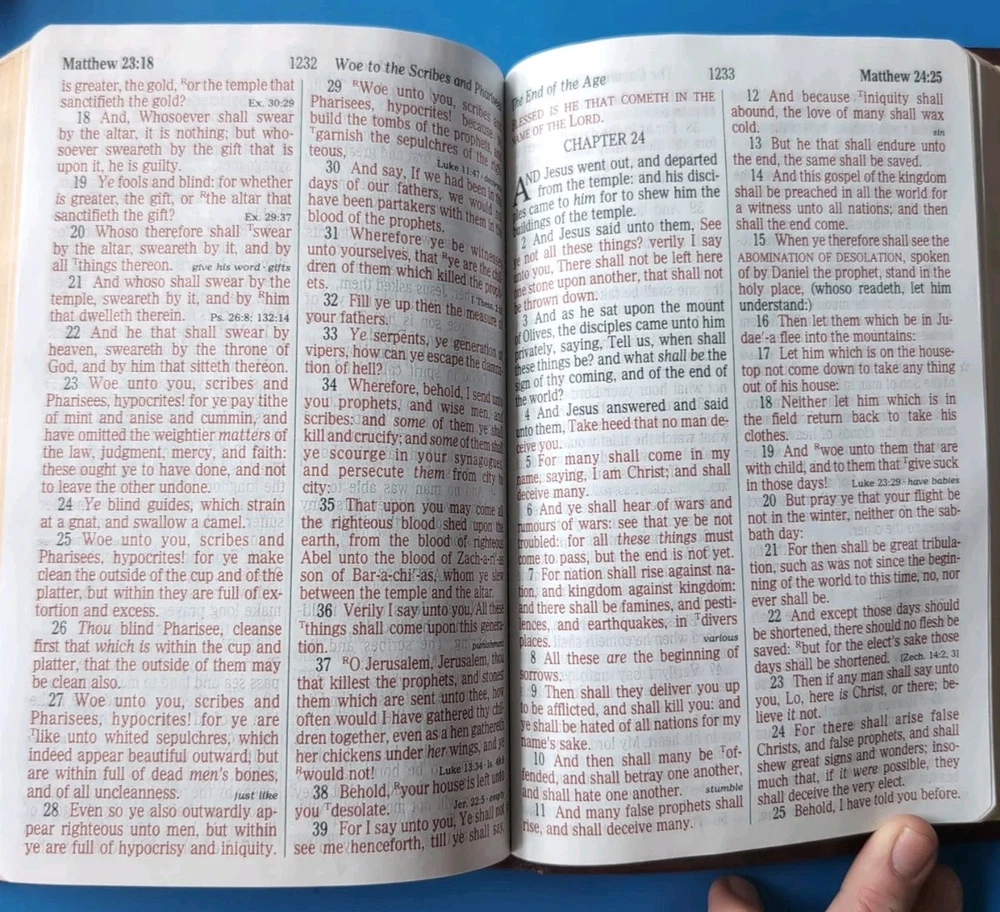 Matthew 23:18
1232
Woe to the Scribes and
is greater, the gold, ᴿor the temple that
sanctifieth the gold? Ex. 30:29
18 And, Whosoever shall swear
by the altar, it is nothing; but who-
soever sweareth by the gift that is
upon it, he is guilty.
19 Ye fools and blind: for whether
is greater, the gift, or ᴿthe altar that
sanctifieth the gift? Ex. 29:37
20 Whoso therefore shall ᵀswear
by the altar, sweareth by it, and by
all ᵀthings thereon. give his word · gifts
21 And whoso shall swear by the
temple, sweareth by it, and by ᴿhim
that dwelleth therein. Ps. 26:8; 132:14
22 And he that shall swear by
heaven, sweareth by the throne of
God, and by him that sitteth thereon.
23 Woe unto you, scribes and
Pharisees, hypocrites! for ye pay tithe
of mint and anise and cummin, and
have omitted the weightier matters of
the law, judgment, mercy, and faith:
these ought ye to have done, and not
to leave the other undone.
24 Ye blind guides, which strain
at a gnat, and swallow a camel.
25 Woe unto you, scribes and
Pharisees, hypocrites! for ye make
clean the outside of the cup and of the
platter, but within they are full of ex-
tortion and excess.
26 Thou blind Pharisee, cleanse
first that which is within the cup and
platter, that the outside of them may
be clean also.
27 Woe unto you, scribes and
Pharisees, hypocrites! for ye are
ᵀlike unto whited sepulchres, which
indeed appear beautiful outward, but
are within full of dead men's bones,
and of all uncleanness. just like
28 Even so ye also outwardly ap-
pear righteous unto men, but within
ye are full of hypocrisy and iniquity.
29 ᴿWoe unto you, scribes
Pharisees, hypocrites! because
build the tombs of the prophets,
ᵀgarnish the sepulchres of the
teous, Luke 11:47
30 And say, If we had been in the
days of our fathers, we would
have been partakers with them in the
blood of the prophets.
31 Wherefore ye be witnesses
unto yourselves, that ᴿye are the
dren of them which killed the
ets.
32 Fill ye up then the measure of
your fathers.
33 Ye serpents, ye generation of
vipers, how can ye escape the
tion of hell?
34 Wherefore, behold, I send unto
you prophets, and wise men, and
scribes: and some of them ye shall
kill and crucify; and some of them shall
ye scourge in your synagogues,
and persecute them from city to
city:
35 That upon you may come all
the righteous blood shed upon the
earth, from the blood of righteous
Abel unto the blood of Zach-a-ri´-as
son of Bar-a-chi´-as, whom ye slew
between the temple and the altar.
36 Verily I say unto you, All these
ᵀthings shall come upon this genera-
tion. punishment
37 ᴿO Jerusalem, Jerusalem, thou
that killest the prophets, and stonest
them which are sent unto thee, how
often would I have gathered thy chil-
dren together, even as a hen gathereth
her chickens under her wings, and ye
ᴿwould not! Luke 13:34
38 Behold, ᴿyour house is left unto
you ᵀdesolate. Jer. 22:5
39 For I say unto you, Ye shall not
see me henceforth, till ye shall say,
The End of the Age
1233
Matthew 24:25
BLESSED IS HE THAT COMETH IN THE
NAME OF THE LORD.
CHAPTER 24
AND Jesus went out, and departed
from the temple: and his disci-
ples came to him for to shew him the
buildings of the temple.
2 And Jesus said unto them, See
ye not all these things? verily I say
unto you, There shall not be left here
one stone upon another, that shall not
be thrown down.
3 And as he sat upon the mount
of Olives, the disciples came unto him
privately, saying, Tell us, when shall
these things be? and what shall be the
sign of thy coming, and of the end of
the world?
4 And Jesus answered and said
unto them, Take heed that no man de-
ceive you.
5 For many shall come in my
name, saying, I am Christ; and shall
deceive many.
6 And ye shall hear of wars and
rumours of wars: see that ye be not
troubled: for all these things must
come to pass, but the end is not yet.
7 For nation shall rise against na-
tion, and kingdom against kingdom:
and there shall be famines, and pesti-
lences, and earthquakes, in ᵀdivers
places. various
8 All these are the beginning of
sorrows.
9 Then shall they deliver you up
to be afflicted, and shall kill you: and
ye shall be hated of all nations for my
name's sake.
10 And then shall many be ᵀof-
fended, and shall betray one another,
and shall hate one another. stumble
11 And many false prophets shall
rise, and shall deceive many.
12 And because ᵀiniquity shall
abound, the love of many shall wax
cold. sin
13 But he that shall endure unto
the end, the same shall be saved.
14 And this gospel of the kingdom
shall be preached in all the world for
a witness unto all nations; and then
shall the end come.
15 When ye therefore shall see the
ABOMINATION OF DESOLATION, spoken
of by Daniel the prophet, stand in the
holy place, (whoso readeth, let him
understand:)
16 Then let them which be in Ju-
dae´-a flee into the mountains:
17 Let him which is on the house-
top not come down to take any thing
out of his house:
18 Neither let him which is in
the field return back to take his
clothes.
19 And ᴿwoe unto them that are
with child, and to them that ᵀgive suck
in those days! Luke 23:29 · have babies
20 But pray ye that your flight be
not in the winter, neither on the sab-
bath day:
21 For then shall be great tribula-
tion, such as was not since the begin-
ning of the world to this time, no, nor
ever shall be.
22 And except those days should
be shortened, there should no flesh be
saved: ᴿbut for the elect's sake those
days shall be shortened. [Zech. 14:2, 3]
23 Then if any man shall say unto
you, Lo, here is Christ, or there; be-
lieve it not.
24 For there shall arise false
Christs, and false prophets, and shall
shew great signs and wonders; inso-
much that, if it were possible, they
shall deceive the very elect.
25 Behold, I have told you before.